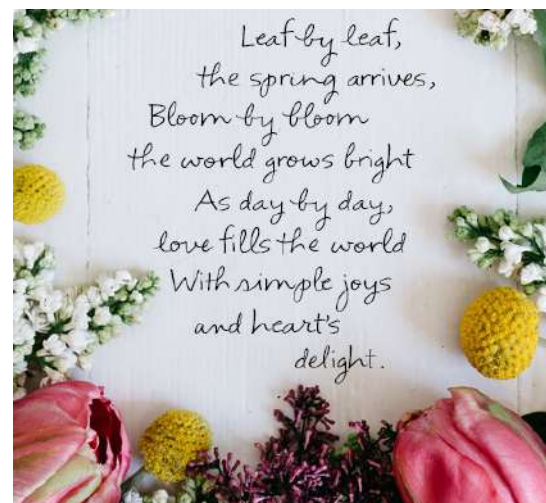 Leaf by leaf,
the spring arrives,
Bloom by bloom
the world grows bright
As day by day,
love fills the world
With simple joys
and heart's
delight.